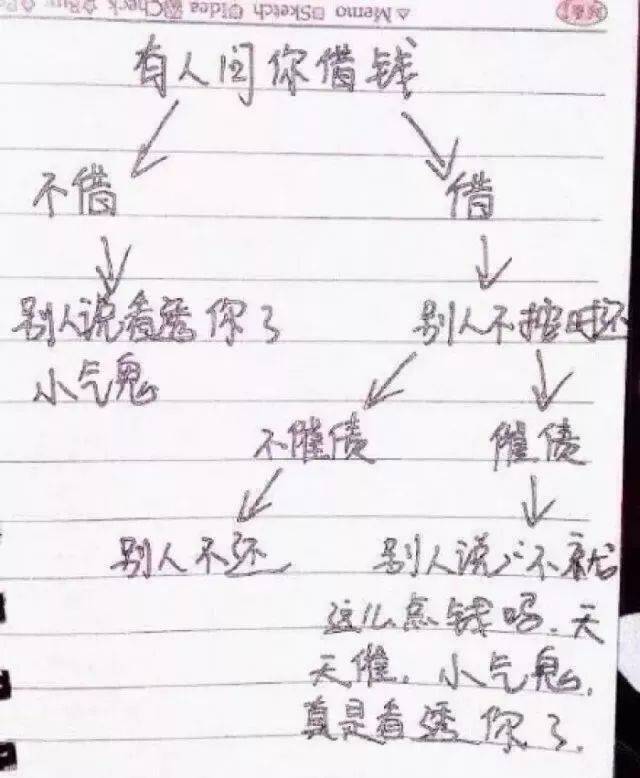 △Memo □Sketch ○Idea ☒Check ☆Buy
有人问你借钱
不借 借
别人说看透你了 别人不按时还
小气鬼
不催债 催债
别人不还 别人说:不就
这么点钱吗,天
天催,小气鬼,
真是看透你了,